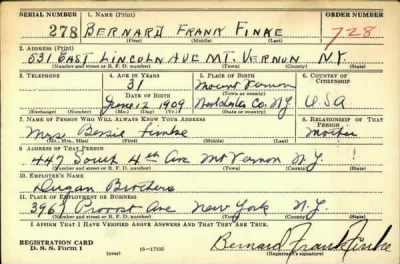 SERIAL NUMBER 1. Name (Print) ORDER NUMBER
278 BERNARD FRANK FINKE 728
(First) (Middle) (Last)
2. Address (Print)
531 EAST LINCOLN AVE MT. VERNON N.Y.
(Number and street or R. F. D. number) (Town) (County) (State)
3. Telephone 4. Age in Years 5. Place of Birth 6. Country of Citizenship
31 Mount Vernon
Date of Birth (Town or county)
June 12, 1909 Westchester Co. N.Y. U.S.A
(Exchange) (Number) (Mo.) (Day) (Yr.) (State or country)
7. Name of Person Who Will Always Know Your Address 8. Relationship of That Person
Mrs. Bessie Finke Mother
(Mr., Mrs., Miss) (First) (Middle) (Last)
9. Address of That Person
447 South 4th Ave Mt Vernon N.Y.
(Number and street or R. F. D. number) (Town) (County) (State)
10. Employer's Name
Dugan Brothers
11. Place of Employment or Business
3967 Provost Ave New York N.Y.
(Number and street or R. F. D. number) (Town) (County) (State)
I Affirm That I Have Verified Above Answers and That They Are True.
REGISTRATION CARD
D. S. S. Form 1 16-17105 Bernard Frank Finke
(Registrant's signature)